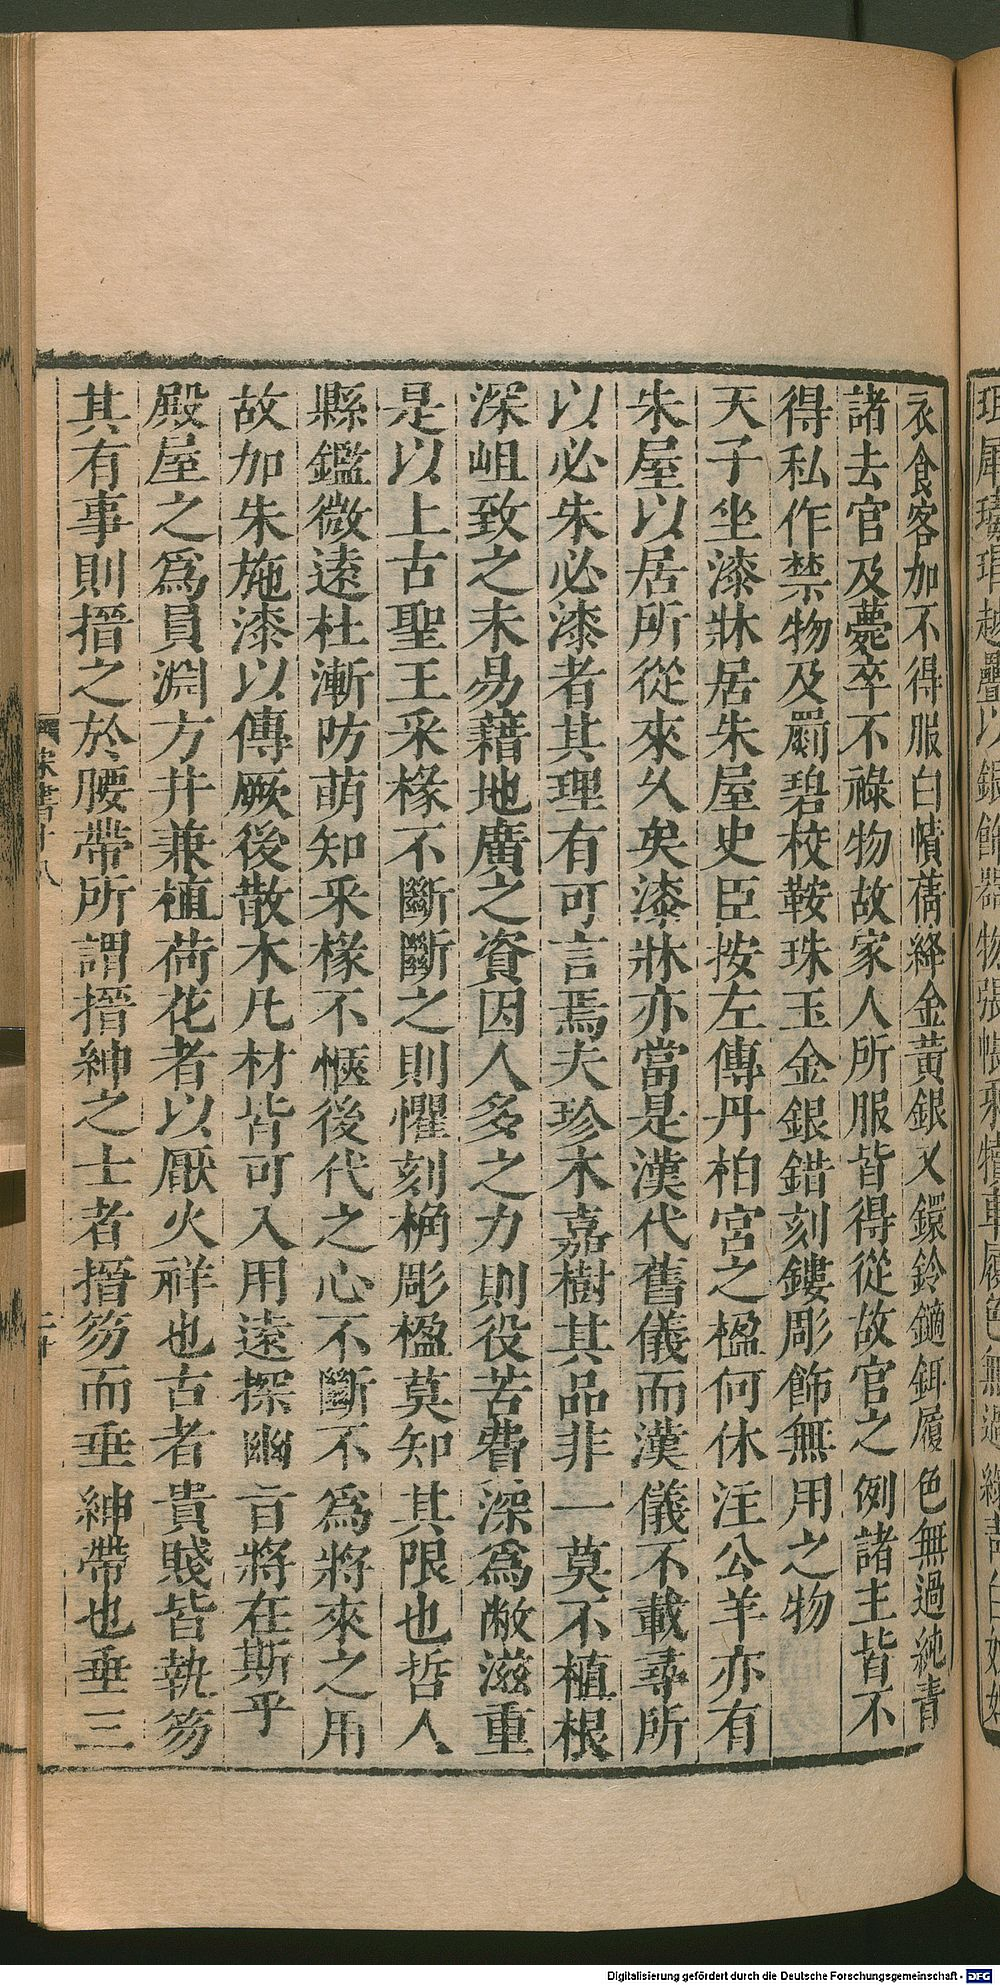 衣食客加不得服白幘蒨絳金黃銀叉鐶鈴鏑鉺履色無過純青
諸去官及薨卒不祿物故家人所服皆得從故官之例諸主皆不
得私作禁物及罽碧校鞍珠玉金銀錯刻鏤彫飾無用之物
天子坐漆牀居朱屋史臣按左傳丹柏宮之楹何休注公羊亦有
朱屋以居所從來久矣漆牀亦當是漢代舊儀而漢儀不載尋所
以必朱必漆者其理有可言焉夫珍木嘉樹其品非一莫不植根
深岨致之未易藉地廣之資因人多之力則役苦費深為敝滋重
是以上古聖王采椽不斷斷之則懼刻桷彫楹莫知其限也哲人
縣鑑微遠杜漸防萌知采椽不愜後代之心不斷不為將來之用
故加朱施漆以傳厥後散木凡材皆可入用遠探幽旨將在斯乎
殿屋之爲員淵方井兼植荷花者以厭火祥也古者貴賤皆執笏
其有事則搢之於腰帶所謂搢紳之士者搢笏而垂紳帶也垂三
宋書十八
Digitalisierung gefördert durch die Deutsche Forschungsgemeinschaft - DFG